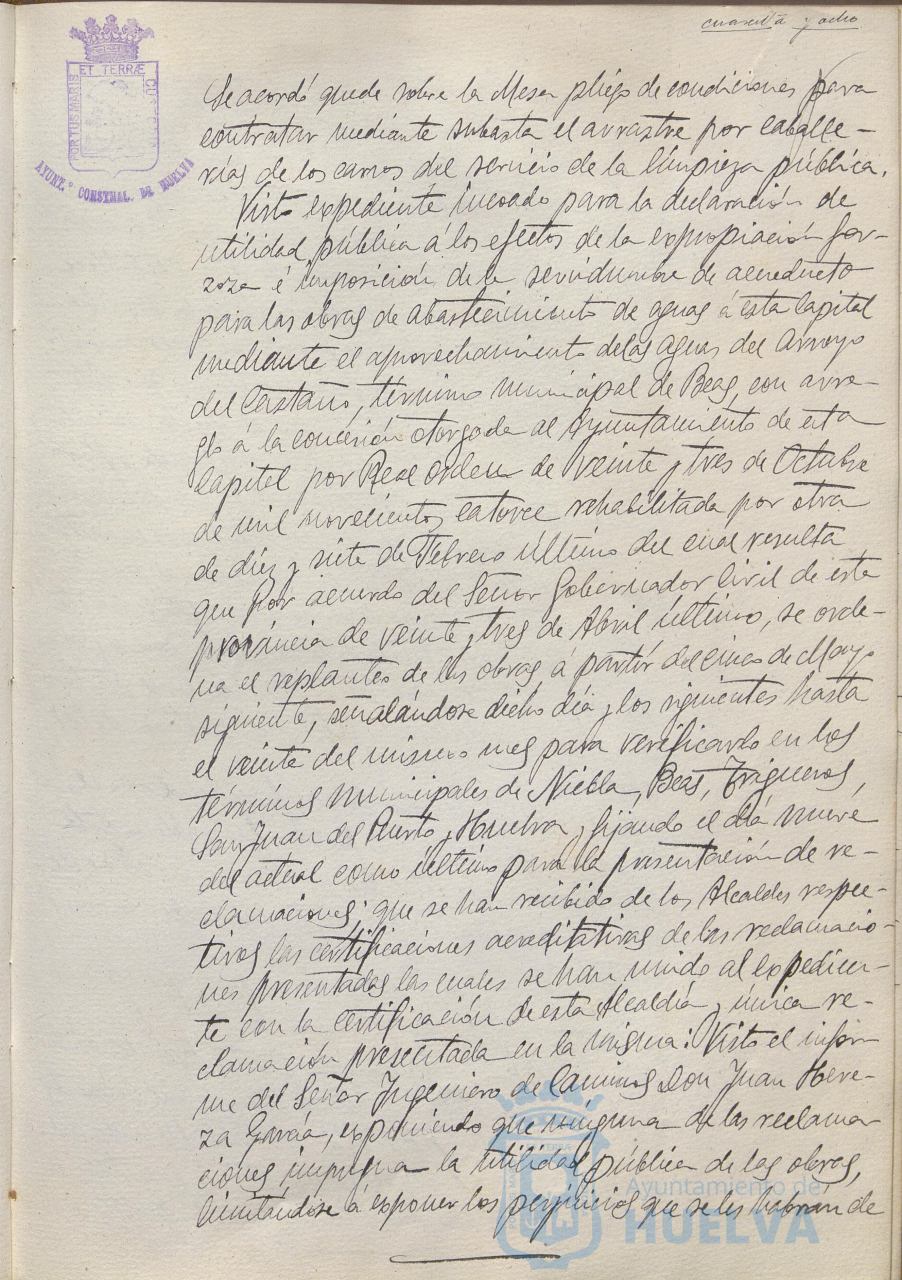 cuarenta y ocho
ET TERRÆ
PORTUS MARIS
AYUNT.º CONSTNAL. DE HUELVA
Se acordó quede sobre la Mesa pliego de condiciones para
contratar mediante subasta el arrastre por caballe-
rías de los carros del servicio de la limpieza pública.
Visto expediente incoado para la declaración de
utilidad pública á los efectos de la expropiación for-
zoza é imposición de la servidumbre de acueducto
para las obras de abastecimiento de aguas á esta Capital
mediante el aprovechamiento de las aguas del Arroyo
del Castaño, término municipal de Beas, con arre-
glo á la concesión otorgada al Ayuntamiento de esta
Capital por Real orden de veinte y tres de Octubre
de mil novecientos catorce rehabilitada por otra
de diez y siete de Febrero último del cual resulta
que por acuerdo del Señor Gobernador Civil de esta
provincia de veinte y tres de Abril último, se orde-
na el replanteo de las obras á partir del cinco de Mayo
siguiente, señalándose dicho día y los siguientes hasta
el veinte del mismo mes para verificarlo en los
términos municipales de Niebla, Beas, Trigueros,
San Juan del Puerto y Huelva y fijando el día nueve
del actual como último para la presentación de re-
clamaciones; que se han recibido de los Alcaldes respec-
tivos las certificaciones acreditativas de las reclamacio-
nes presentadas las cuales se han unido al expedien-
te con la certificación de esta Alcaldía y única re-
clamación presentada en la misma: Visto el infor-
me del Señor Ingeniero de Caminos Don Juan Here-
za García, exponiendo que ninguna de las reclama-
ciones impugna la utilidad pública de las obras,
limitándose á exponer los perjuicios que se les habrán de
Ayuntamiento de
HUELVA